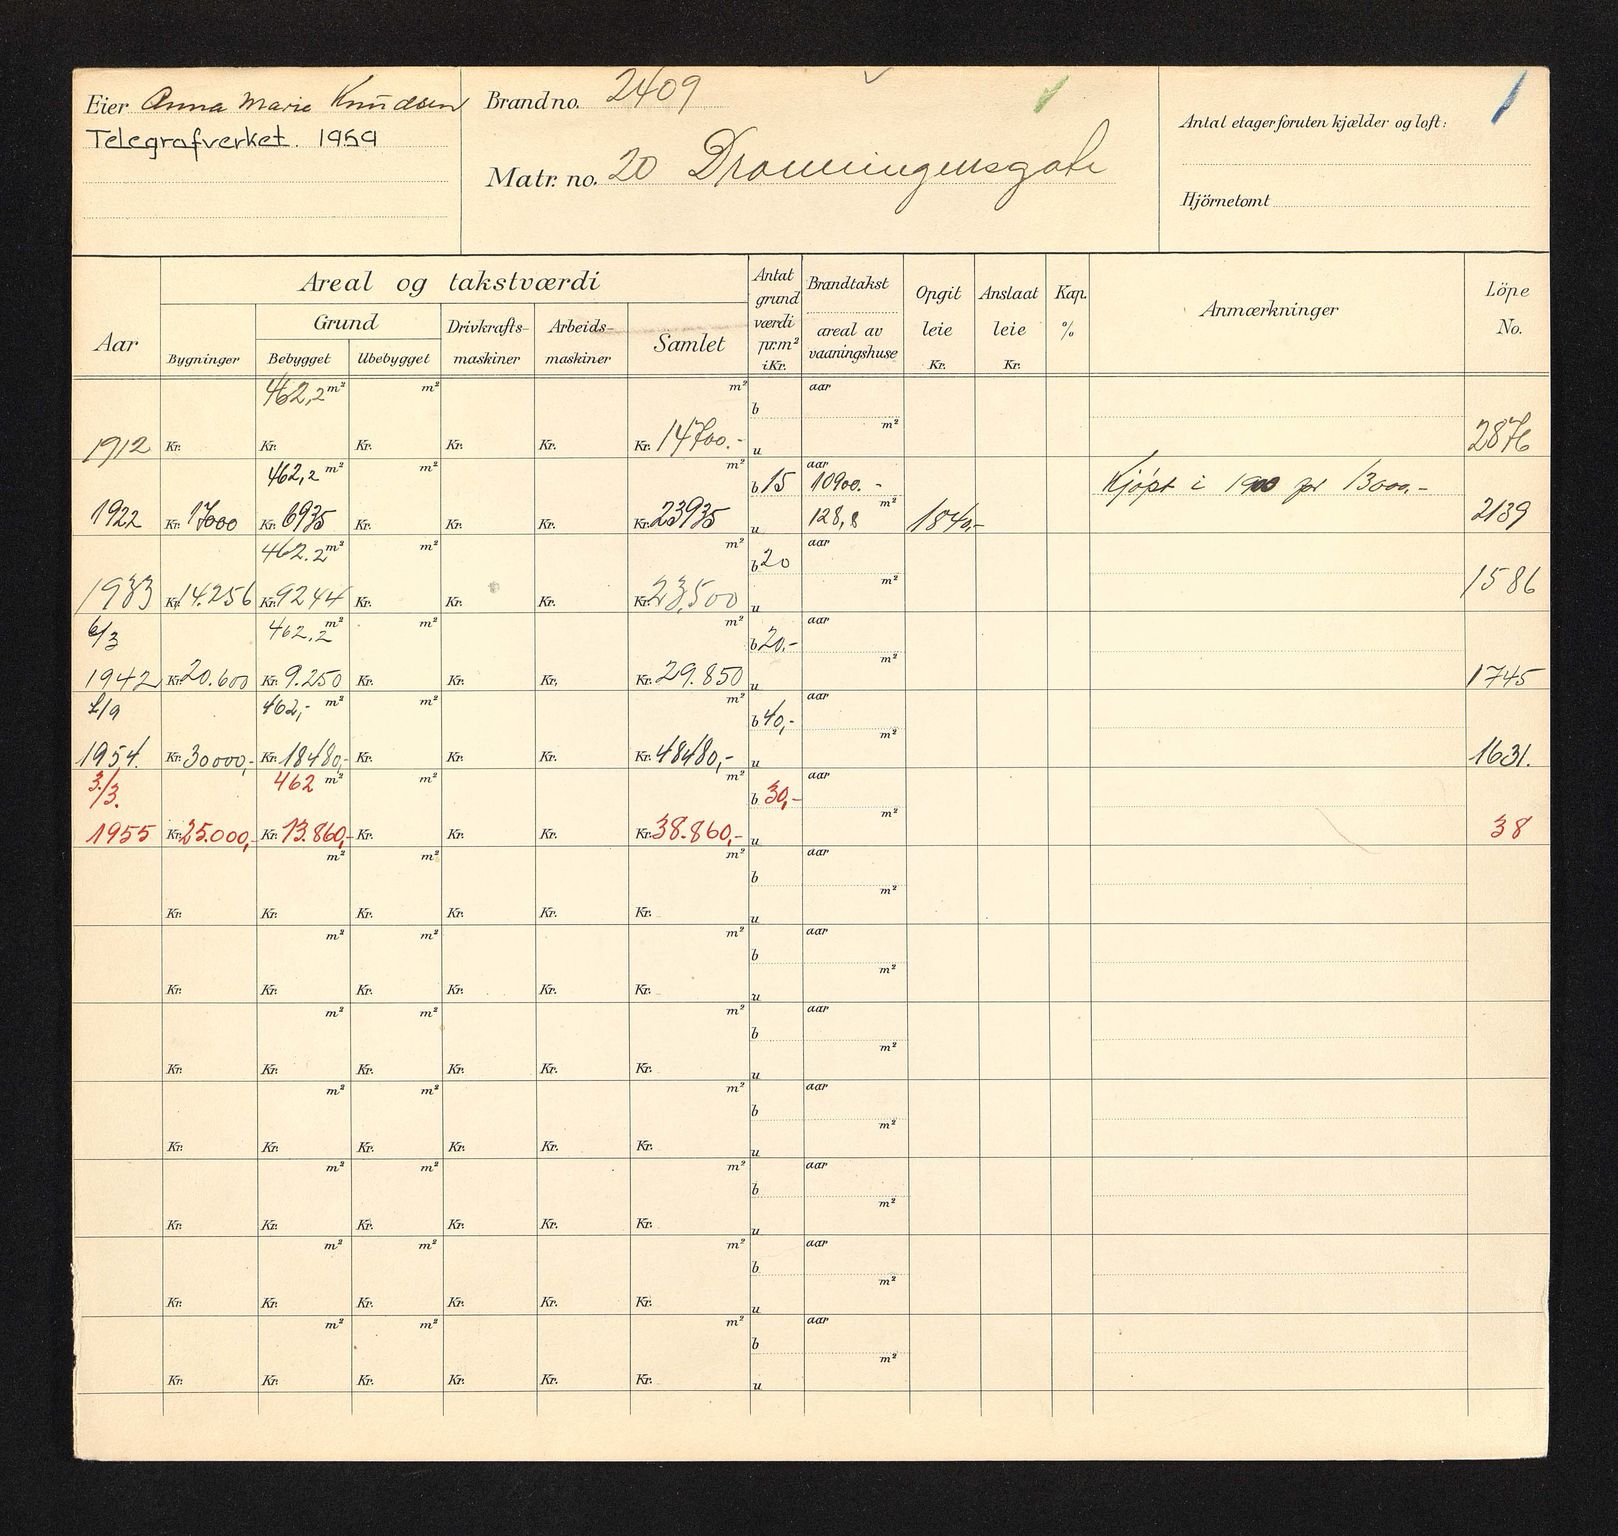 Eier Anna Marie Knudsen
Telegrafverket. 1959
Brand no. 2409
Matr. no. 20 Dronningensgate
1
Antal etager foruten kjælder og loft:
Hjörnetomt
Aar
Areal og takstværdi
Bygninger
Grund
Bebygget
Ubebygget
Drivkrafts-
maskiner
Arbeids-
maskiner
Samlet
Antat
grund
værdi
pr.m²
i Kr.
Brandtakst
areal av
vaaningshuse
Opgit
leie
Kr.
Anslaat
leie
Kr.
Kap.
%
Anmærkninger
Löpe
No.
462,2 m² m² m² b aar
m²
1912 Kr. Kr. Kr. Kr. Kr. Kr. 14700.- u 2876
462,2 m² m² m² b 15 aar 10900.- Kjøpt i 1900 for 13000,-
m²
1922 Kr. 17000 Kr. 6935 Kr. Kr. Kr. Kr. 23935 u 128,8 1840,- 2139
462.2 m² m² m² b 20 aar
m²
1933 Kr. 14.256 Kr. 9244 Kr. Kr. Kr. Kr. 23,500 u 1586
6/3 462,2 m² m² m² b 20.- aar
m²
1942 Kr. 20.600 Kr. 9.250 Kr. Kr. Kr. Kr. 29.850 u 1745
/9 462,- m² m² m² b 40,- aar
m²
1954. Kr. 30000,- Kr. 18480,- Kr. Kr. Kr. Kr. 48480,- u 1631.
3./3. 462 m² m² m² b 30,- aar
m²
1955 Kr. 25.000,- Kr. 13.860,- Kr. Kr. Kr. Kr. 38.860,- u 38
m² m² m² aar
b m²
Kr. Kr. Kr. Kr. Kr. Kr. u
m² m² m² aar
b m²
Kr. Kr. Kr. Kr. Kr. Kr. u
m² m² m² aar
b m²
Kr. Kr. Kr. Kr. Kr. Kr. u
m² m² m² aar
b m²
Kr. Kr. Kr. Kr. Kr. Kr. u
m² m² m² aar
b m²
Kr. Kr. Kr. Kr. Kr. Kr. u
m² m² m² aar
b m²
Kr. Kr. Kr. Kr. Kr. Kr. u
m² m² m² aar
b m²
Kr. Kr. Kr. Kr. Kr. Kr. u